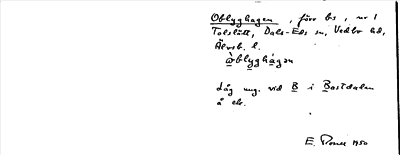 Oblyghagen, förr bs, nr 1
Tolslätt, Dals-Eds sn, Vedbo hd,
Älvsb. l.
òblyghágən
Låg ung. vid B i Bastdalen
å ek.
E. 1950